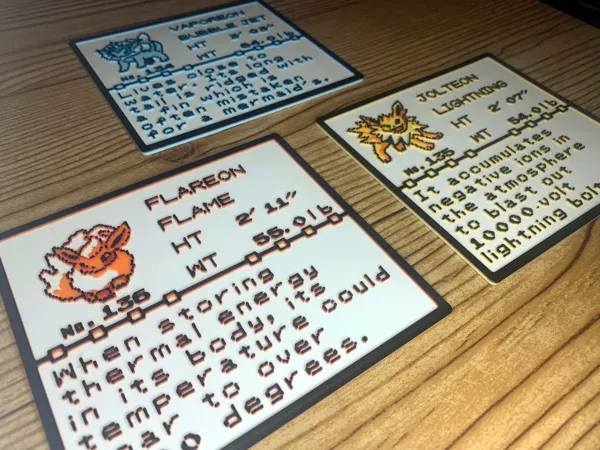 VAPOREON
BUBBLE JET
HT 3' 03"
WT 64.0lb
No. 134
Lives close to
water. Its long
tail is ridged
with a fin which is
often mistaken
for a mermaid's.
JOLTEON
LIGHTNING
HT 2' 07"
WT 54.0lb
No. 135
It accumulates
negative ions in
the atmosphere
to blast out
10000-volt
lightning bolts
FLAREON
FLAME
HT 2' 11"
WT 55.0lb
No. 136
When storing
thermal energy
in its body, its
temperature could
soar to over
degrees.